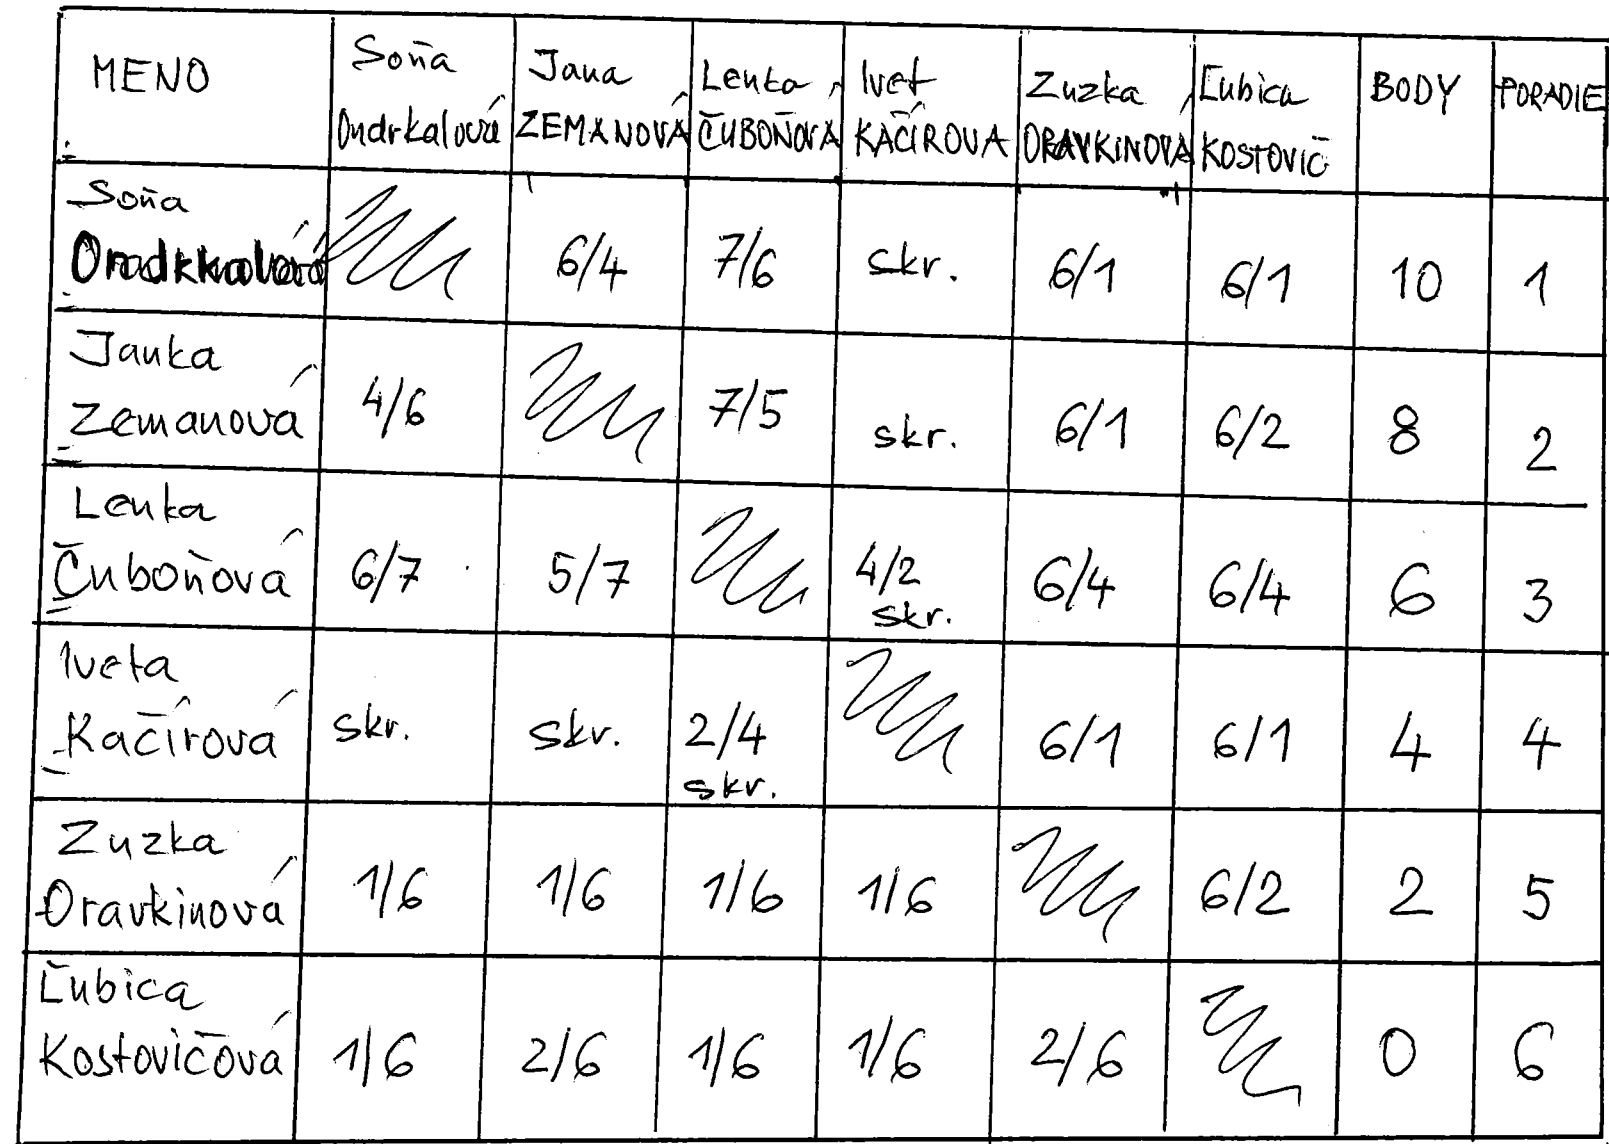 MENO Soňa Ondrkalová Jana ZEMANOVÁ Lenka ČUBOŇOVÁ Ivet KAČÍROVA Zuzka ORAVKINOVÁ Ľubica KOSTOVIČ BODY PORADIE
Soňa
Ondrkkalová 6/4 7/6 skr. 6/1 6/1 10 1
Janka
Zemanová 4/6 7/5 skr. 6/1 6/2 8 2
Lenka
Čuboňová 6/7 5/7 4/2 skr. 6/4 6/4 6 3
Iveta
Kačírová skr. skr. 2/4 skr. 6/1 6/1 4 4
Zuzka
Oravkinová 1/6 1/6 1/6 1/6 6/2 2 5
Ľubica
Kostovičová 1/6 2/6 1/6 1/6 2/6 0 6